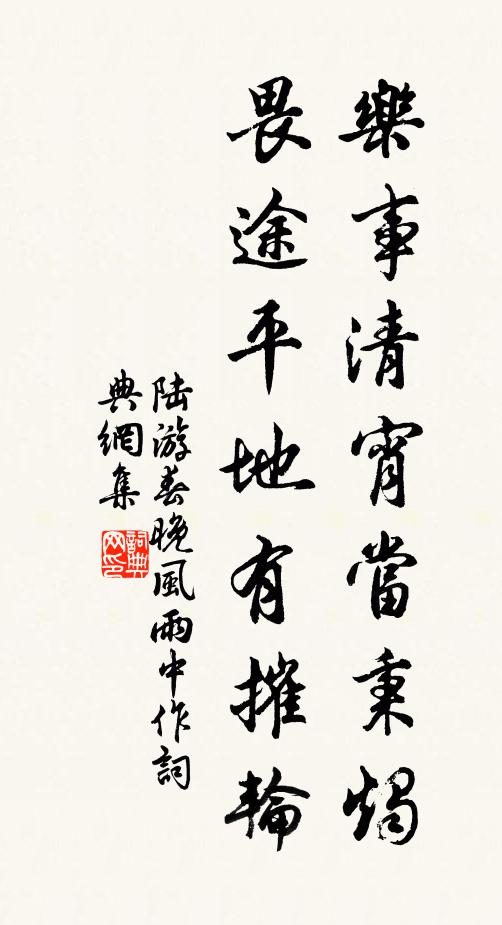 樂事清宵當秉燭
畏途平地有摧輪
陆游春晚風雨中作詞
典網集
詞典网印